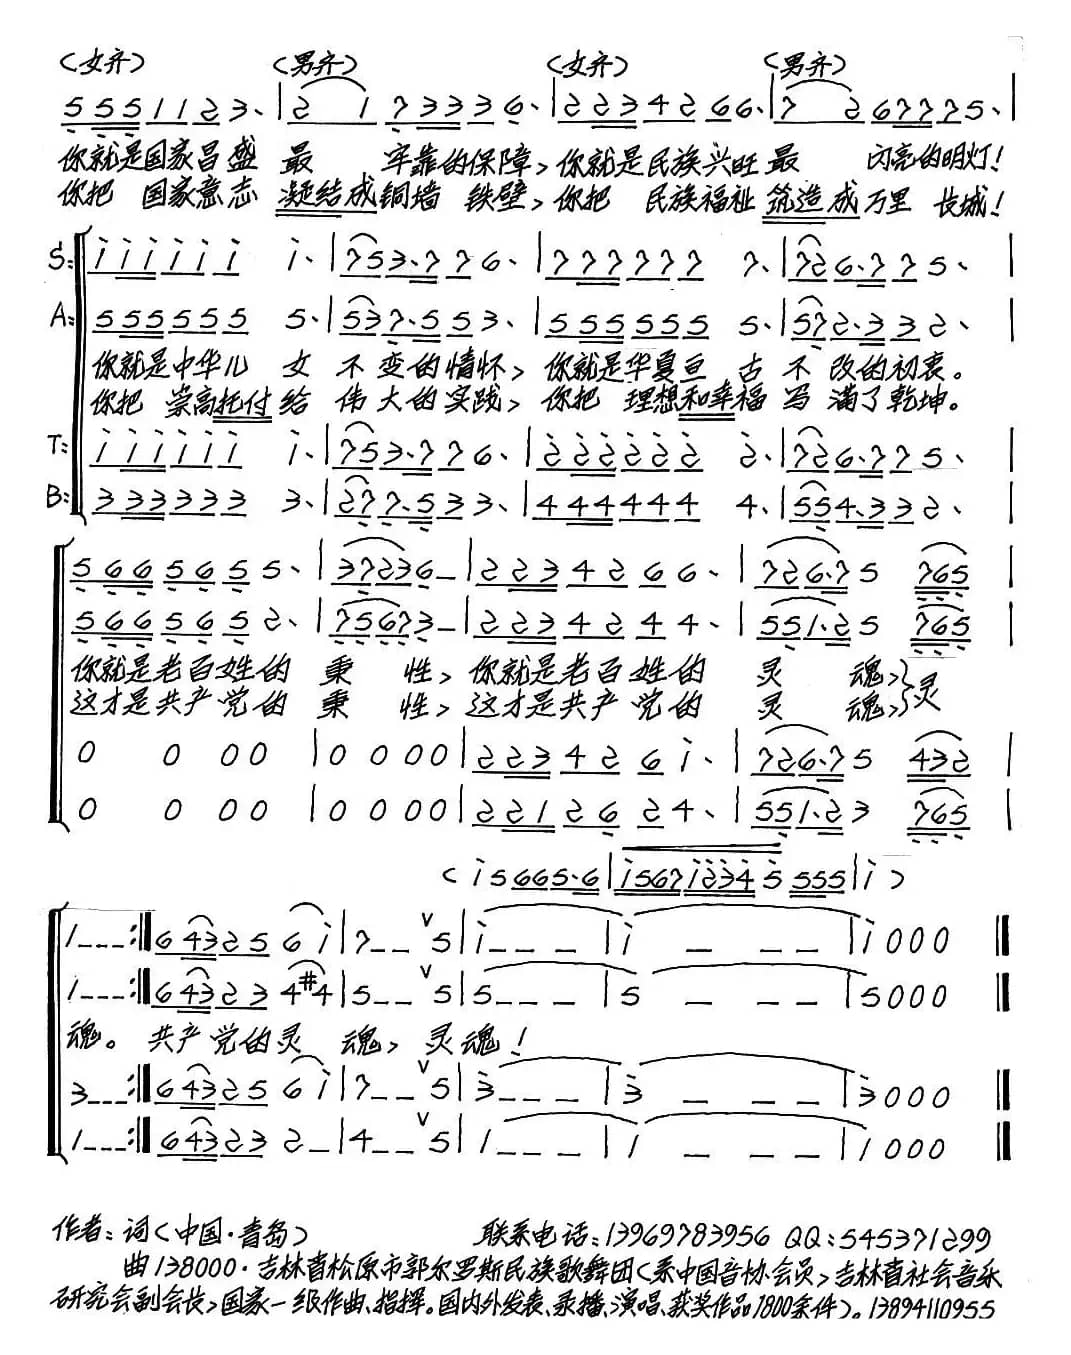 (女齐) (男齐) (女齐) (男齐)
5 5 5 1 1 2 3. | 2 1 7 3 3 3 6. | 2 2 3 4 2 6 6. | 7 2 6 7 7 7 5. |
你就是国家昌盛 最 牢靠的保障, 你就是民族兴旺 最 闪亮的明灯!
你把 国家意志 凝结成铜墙 铁壁, 你把 民族福祉 筑造成万里 长城!
S: i i i i i i i. | 7 5 3. 7 7 6. | 7 7 7 7 7 7 7. | 7 2 6. 7 7 5. |
A: 5 5 5 5 5 5 5. | 5 3 7. 5 5 3. | 5 5 5 5 5 5 5. | 5 7 2. 3 3 2. |
你就是中华儿 女 不 变的情怀, 你就是华夏亘 古 不 改的初衷。
你把 崇高托付 给 伟 大的实践, 你把 理想和幸福 写 满了乾坤。
T: i i i i i i i. | 7 5 3. 7 7 6. | 2 2 2 2 2 2 2. | 7 2 6. 7 7 5. |
B: 3 3 3 3 3 3 3. | 2 7 7. 5 3 3. | 4 4 4 4 4 4 4. | 5 5 4. 3 3 2. |
5 6 6 5 6 5 5. | 3 7 2 3 6 – | 2 2 3 4 2 6 6. | 7 2 6. 7 5 7 6 5
5 6 6 5 6 5 2. | 7 5 6 7 3 – | 2 2 3 4 2 4 4. | 5 5 1. 2 5 7 6 5
你就是老百姓的 秉 性, 你就是老百姓的 灵 魂,}灵
这才是共产党的 秉 性, 这才是共产党的 灵 魂,}
0 0 0 0 | 0 0 0 0 | 2 2 3 4 2 6 i. | 7 2 6. 7 5 4 3 2 |
0 0 0 0 | 0 0 0 0 | 2 2 1 2 6 2 4. | 5 5 1. 2 3 7 6 5 |
( i 5 6 6 5. 6 | i 5 6 7 i 2 3 4 5 5 5 5 | i )
1 – – – :‖ 6 4 3 2 5 6 i | 7 – – ∨ 5 | i – – – | i – – – | i 0 0 0 ‖
1 – – – :‖ 6 4 3 2 3 4 #4 | 5 – – ∨ 5 | 5 – – – | 5 – – – | 5 0 0 0 ‖
魂。 共产党的灵 魂, 灵魂!
3 – – – :‖ 6 4 3 2 5 6 i | 7 – – ∨ 5 | 3 – – – | 3 – – – | 3 0 0 0 ‖
1 – – – :‖ 6 4 3 2 3 2 – | 4 – – ∨ 5 | 1 – – – | 1 – – – | 1 0 0 0 ‖
作者: 词(中国·青岛) 联系电话:13969783956 QQ:545371299
曲138000·吉林省松原市郭尔罗斯民族歌舞团(系中国音协会员,吉林省社会音乐
研究会副会长,国家一级作曲、指挥。国内外发表、录播、演唱、获奖作品1800余件)。13894110955